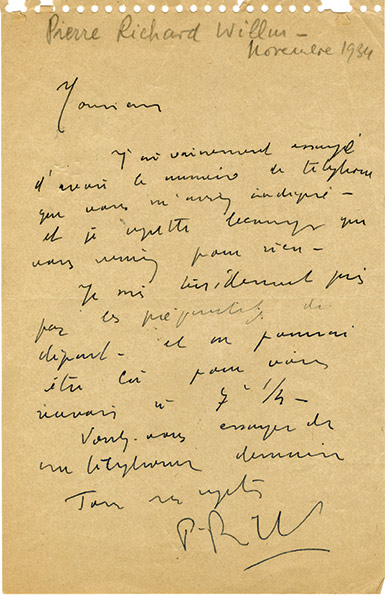 Pierre Richard Willm -
Novembre 1934
Monsieur
J'ai vainement essayé
d'avoir le numéro de téléphone
que vous m'avez indiqué -
et je regrette beaucoup que
vous veniez pour rien -
Je suis très pris
par les préparatifs de
départ - et ne pourrai
être là pour vous
recevoir à 7h 1/4 -
Voulez-vous essayer de
me téléphoner demain
Tous mes regrets
P-R W